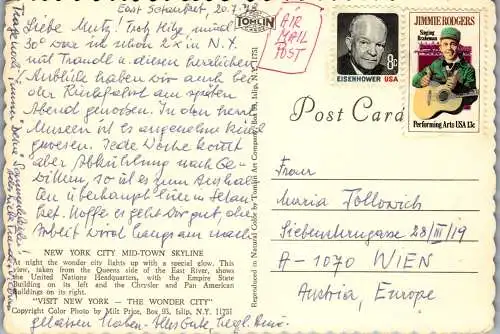 East Setauket, 20.7.78
Liebe Mutz! Trotz Hitze und
30° war ich schon 2x in N.Y.
mit Traudl u. diesen herrlichen
Anblick haben wir auch bei
der Rückfahrt am späten
Abend genossen. In den
Museen ist es angenehm
gewesen. Jede Woche kommt
aber Abkühlung nach Ge-
wittern, so ist es zum Aushal-
ten überhaupt hier in Islan
Hoffe es geht Dir gut, die
Arbeit wird langsam nach-
gelassen haben. Alles Gute,
NEW YORK CITY MID-TOWN SKYLINE
At night the wonder city lights up with a special glow. This
view, taken from the Queens side of the East River, shows
the United Nations Headquarters, with the Empire State
Building on its left and the Chrysler and Pan American
buildings on its right.
"VISIT NEW YORK — THE WONDER CITY"
Copyright Color Photo by Milt Price, Box 93, Islip, N.Y. 11751
TOMLIN
Reproduced in Natural Color by Tomlin Art Company, Box 93, Islip, N.Y. 11751
AIR
MAIL
POST
EISENHOWER USA
8c
JIMMIE RODGERS
Singing
Brakeman
Performing Arts USA 13c
Post Card
Frau
Maria Tollowich
Siebensterngasse 28/III/19
A-1070 WIEN
Austria, Europe